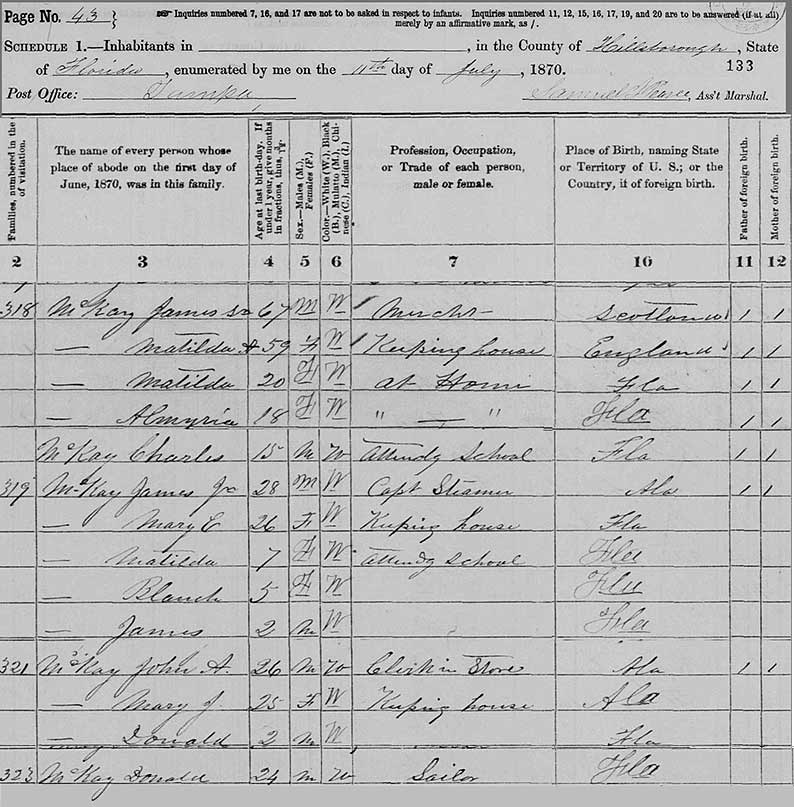 Page No. 43 }
☞ Inquiries numbered 7, 16, and 17 are not to be asked in respect to infants. Inquiries numbered 11, 12, 15, 16, 17, 19, and 20 are to be answered (if at all)
merely by an affirmative mark, as /.
SCHEDULE 1.—Inhabitants in , in the County of Hillsborough, State
of Florida, enumerated by me on the 11th day of July, 1870. 133
Post Office: Tampa, Samuel Pearce, Ass't Marshal.
Families, numbered in the order of visitation.
The name of every person whose place of abode on the first day of June, 1870, was in this family.
Age at last birth-day. If under 1 year, give months in fractions, thus, 3/12.
Sex.—Males (M.), Females (F.)
Color.—White (W.), Black (B.), Mulatto (M.), Chinese (C.), Indian (I.)
Profession, Occupation, or Trade of each person, male or female.
Place of Birth, naming State or Territory of U. S.; or the Country, if of foreign birth.
Father of foreign birth.
Mother of foreign birth.
2 3 4 5 6 7 10 11 12
318 McKay James Sr 67 M W Mercht Scotland 1 1
— Matilda A 59 F W Keeping house England 1 1
— Matilda 20 F W at Home Fla 1 1
— Almyria 18 F W " — " Fla 1 1
McKay Charles 15 M W Attendg School Fla 1 1
319 McKay James Jr 28 M W Capt Steamer Ala 1 1
— Mary E 26 F W Keeping house Fla
— Matilda 7 F W Attendg School Fla
— Blanch 5 F W Fla
— James 2 M W Fla
321 McKay John A. 26 M W Clerk in Store Ala 1 1
— Mary J. 25 F W Keeping house Ala
— Donald 2 M W Fla
323 McKay Donald 24 M W Sailor Fla